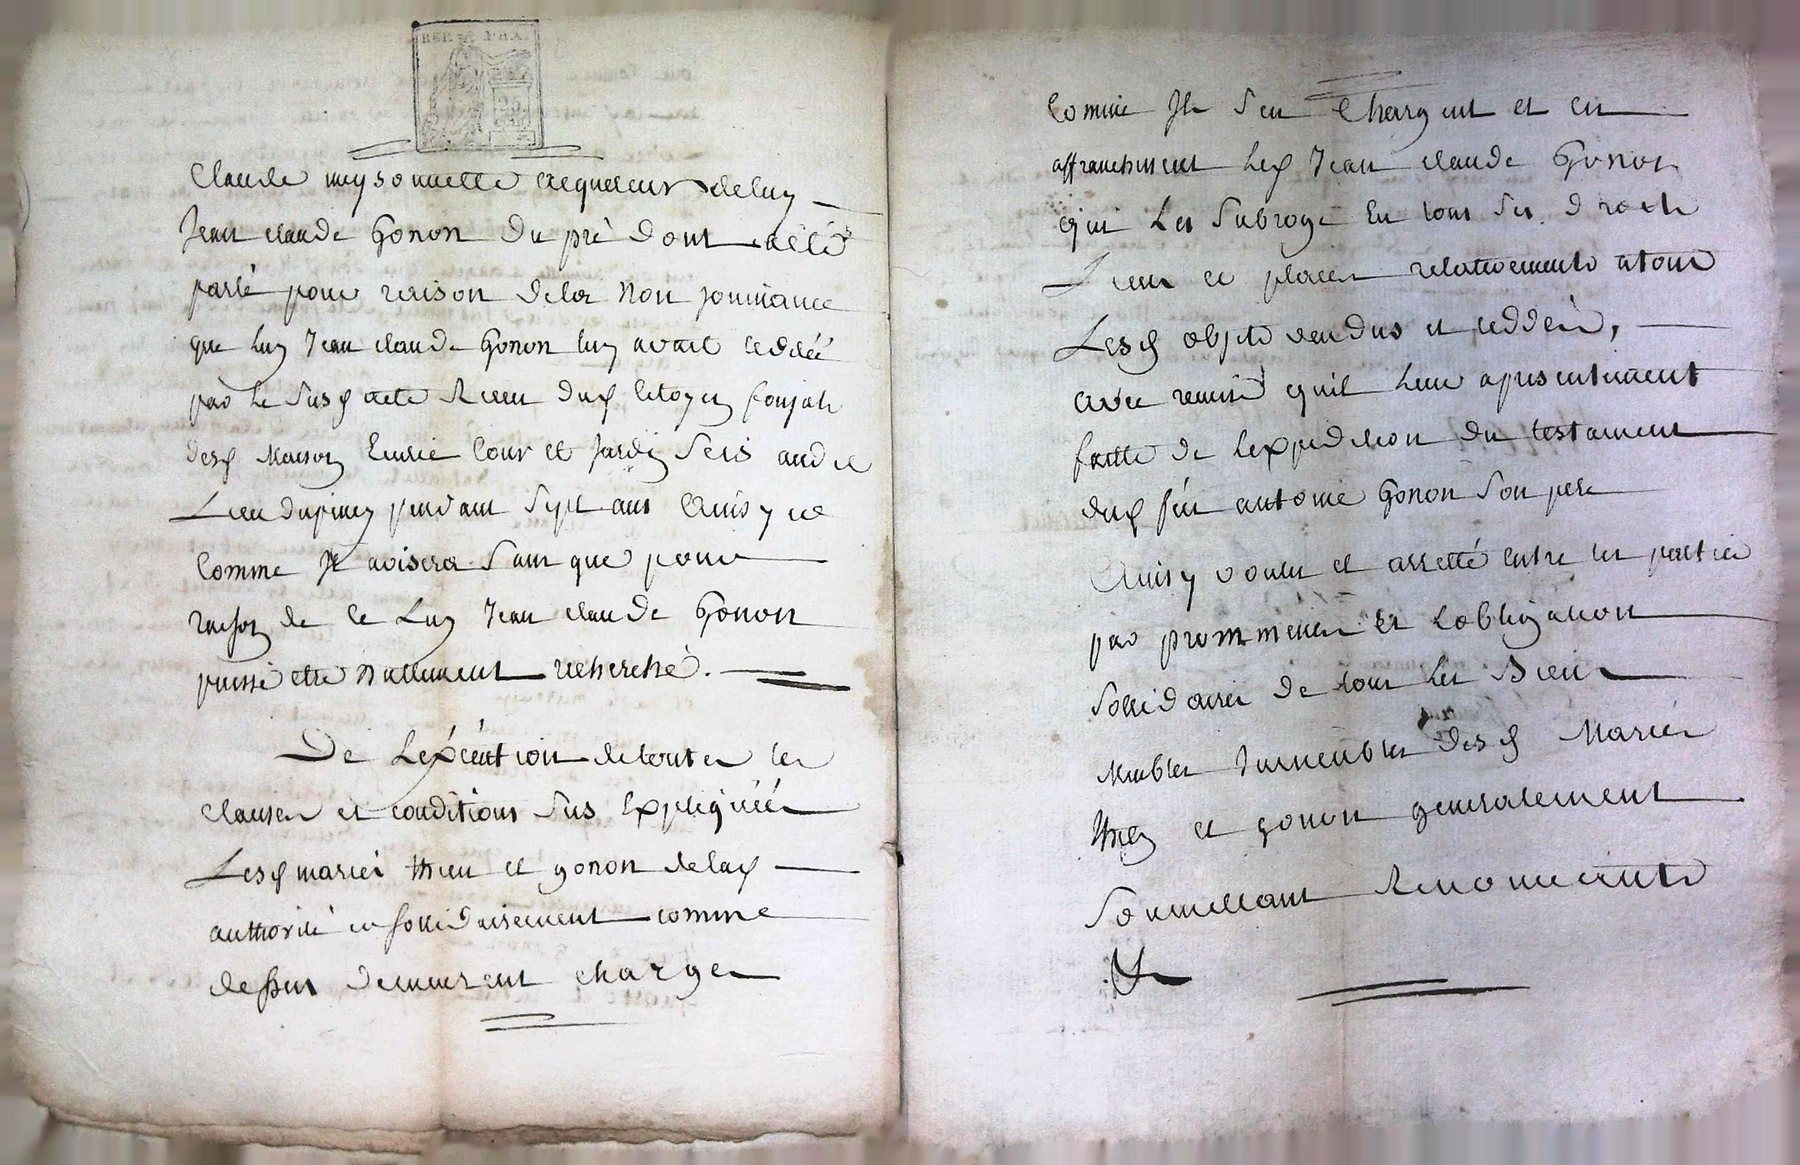 REP. FRA.
Claude meysonnette acquereur de luy
Jean claude Gonon du pré dont a eté
parlé pour raison de la Non jouissance
que luy Jean claude Gonon luy avait ceddée
par le susd acte Dud citoyen
desd Maison Curie Cour et Jardin scis aud
Lieu dupiney pendant sept ans Ainsy
Comme Il avisera sans que pour
raison de ce Luy Jean claude Gonon
puisse etre Nullement recherché.
De Lexécution de toutes les
clauses et conditions sus Expliquées
Lesd mariés thieu et gonon de lad
authorité en sollidairement comme
dessus demeurent charges
Comme Ils sen Chargent et en
affranchissent Led Jean claude Gonon
qui Les subroge En tous ses droits
Lieux et places relativements a tous
Lesd objets vendus et ceddés,
avec remise quil leur a presentement
faitte de Lexpedition du testament
dud feu antoine Gonon son pere
Ainsy voulu et arretté entre les parties
par prommesses Et Lobligation
sollidaires de tous les Biens
Meubles Immeubles desd Mariés
thieu et gonon generalement
soumettant Renonceants
&